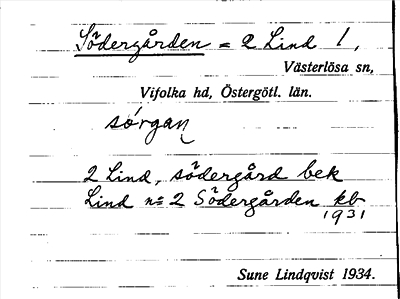 Södergården = 2 Lind 1,
Västerlösa sn,
Vifolka hd, Östergötl. län.
sórgan
2 Lind, södergård bek
Lind nº 2 Södergården kb
1931
Sune Lindqvist 1934.